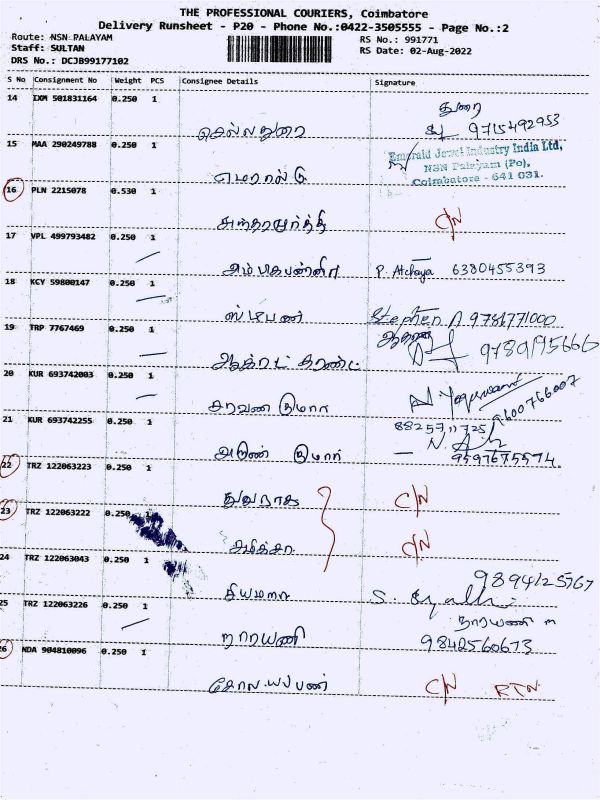 THE PROFESSIONAL COURIERS, Coimbatore
Delivery Runsheet - P20 - Phone No.:0422-3505555 - Page No.:2
Route: NSN PALAYAM
RS No.: 991771
Staff: SULTAN
RS Date: 02-Aug-2022
DRS No.: DCJB99177102
S No Consignment No Weight PCS Consignee Details Signature
14 IXM 501831164 0.250 1
துரை
செல்லதுரை 9715492953
15 MAA 290249788 0.250 1
Emerald Jewel Industry India Ltd,
NSN Palayam (Po),
எமரால்டு Coimbatore - 641 031.
16 PLN 2215078 0.530 1
C/N
17 VPL 499793482 0.250 1
P. Atchaya 6380455393
18 KCY 59800147 0.250 1
ஸ்டீபண் Stephen A 9781771000
19 TRP 7767469 0.250 1
20 KUR 693742003 0.250 1
சரவண குமார்
9600766007
21 KUR 693742255 0.250 1
8825711725
அருண் குமார் 9597675574
22 TRZ 122063223 0.250 1
C/N
23 TRZ 122063222 0.250 1
C/N
24 TRZ 122063043 0.250 1
9894125767
25 TRZ 122063226 0.250 1
நாராயணி
நாராயணி 9842560673
26 NDA 904810096 0.250 1
C/N RTN